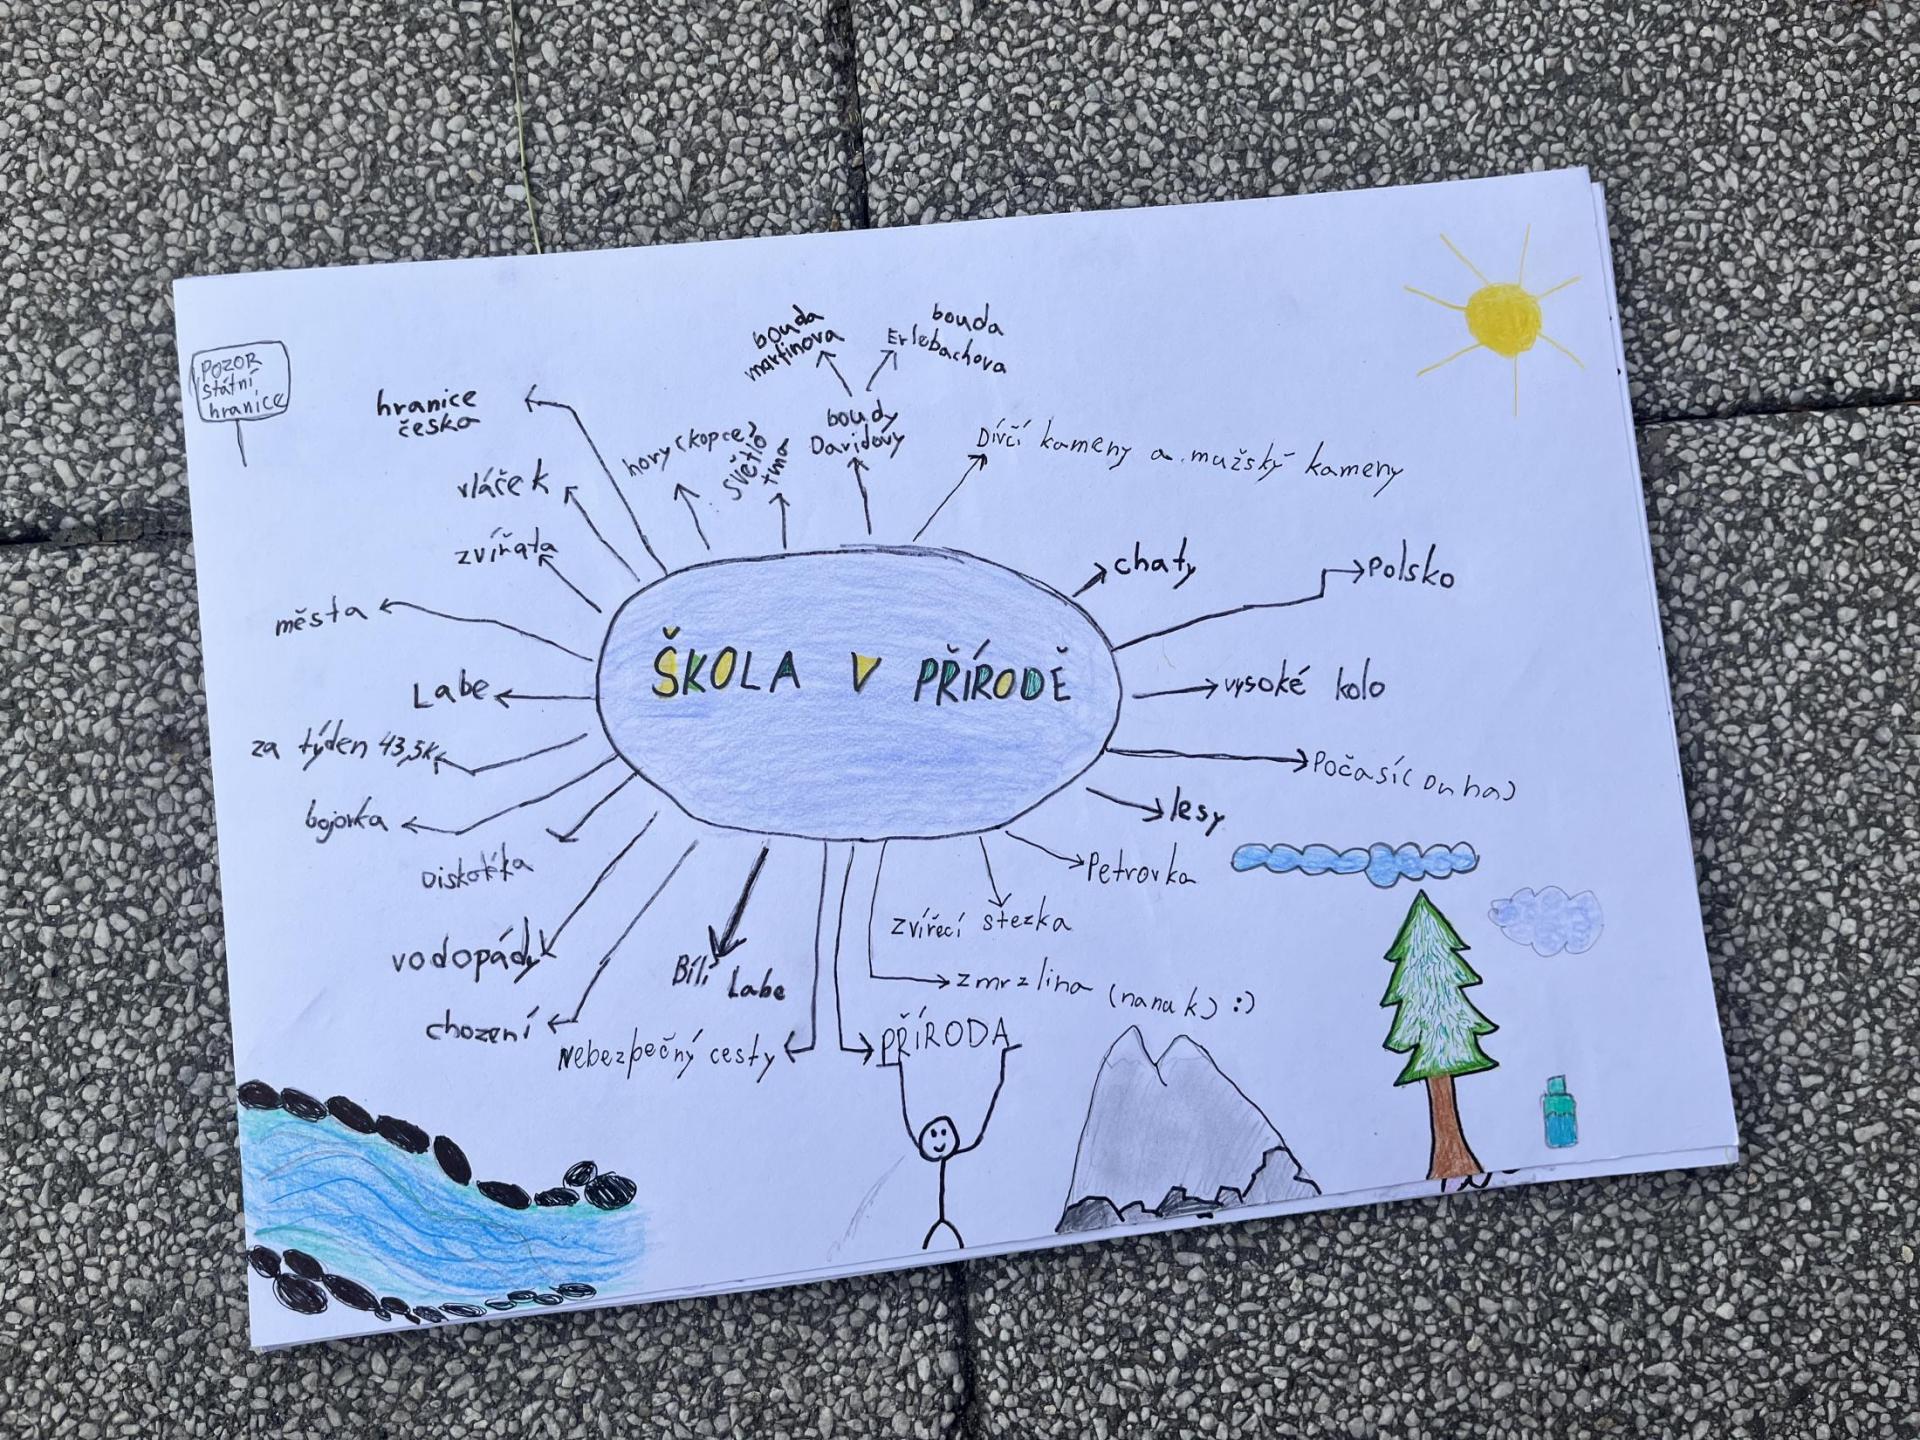 POZOR
státní
hranice
hranice
česka
vláček
zvířata
města
Labe
za týden 43,5k
bojovka
Diskotéka
vodopády
chození
Nebezpečný cesty
Bílí Labe
PŘÍRODA
zmrzlina (nanuk) :)
zvířecí stezka
Petrovka
lesy
Počasí (Duha)
vysoké kolo
Polsko
chaty
Dívčí kameny a mužský kameny
boudy
Davidovy
bouda
martinova
bouda
Erlebachova
světlo
tma
hory (kopce)
ŠKOLA V PŘÍRODĚ